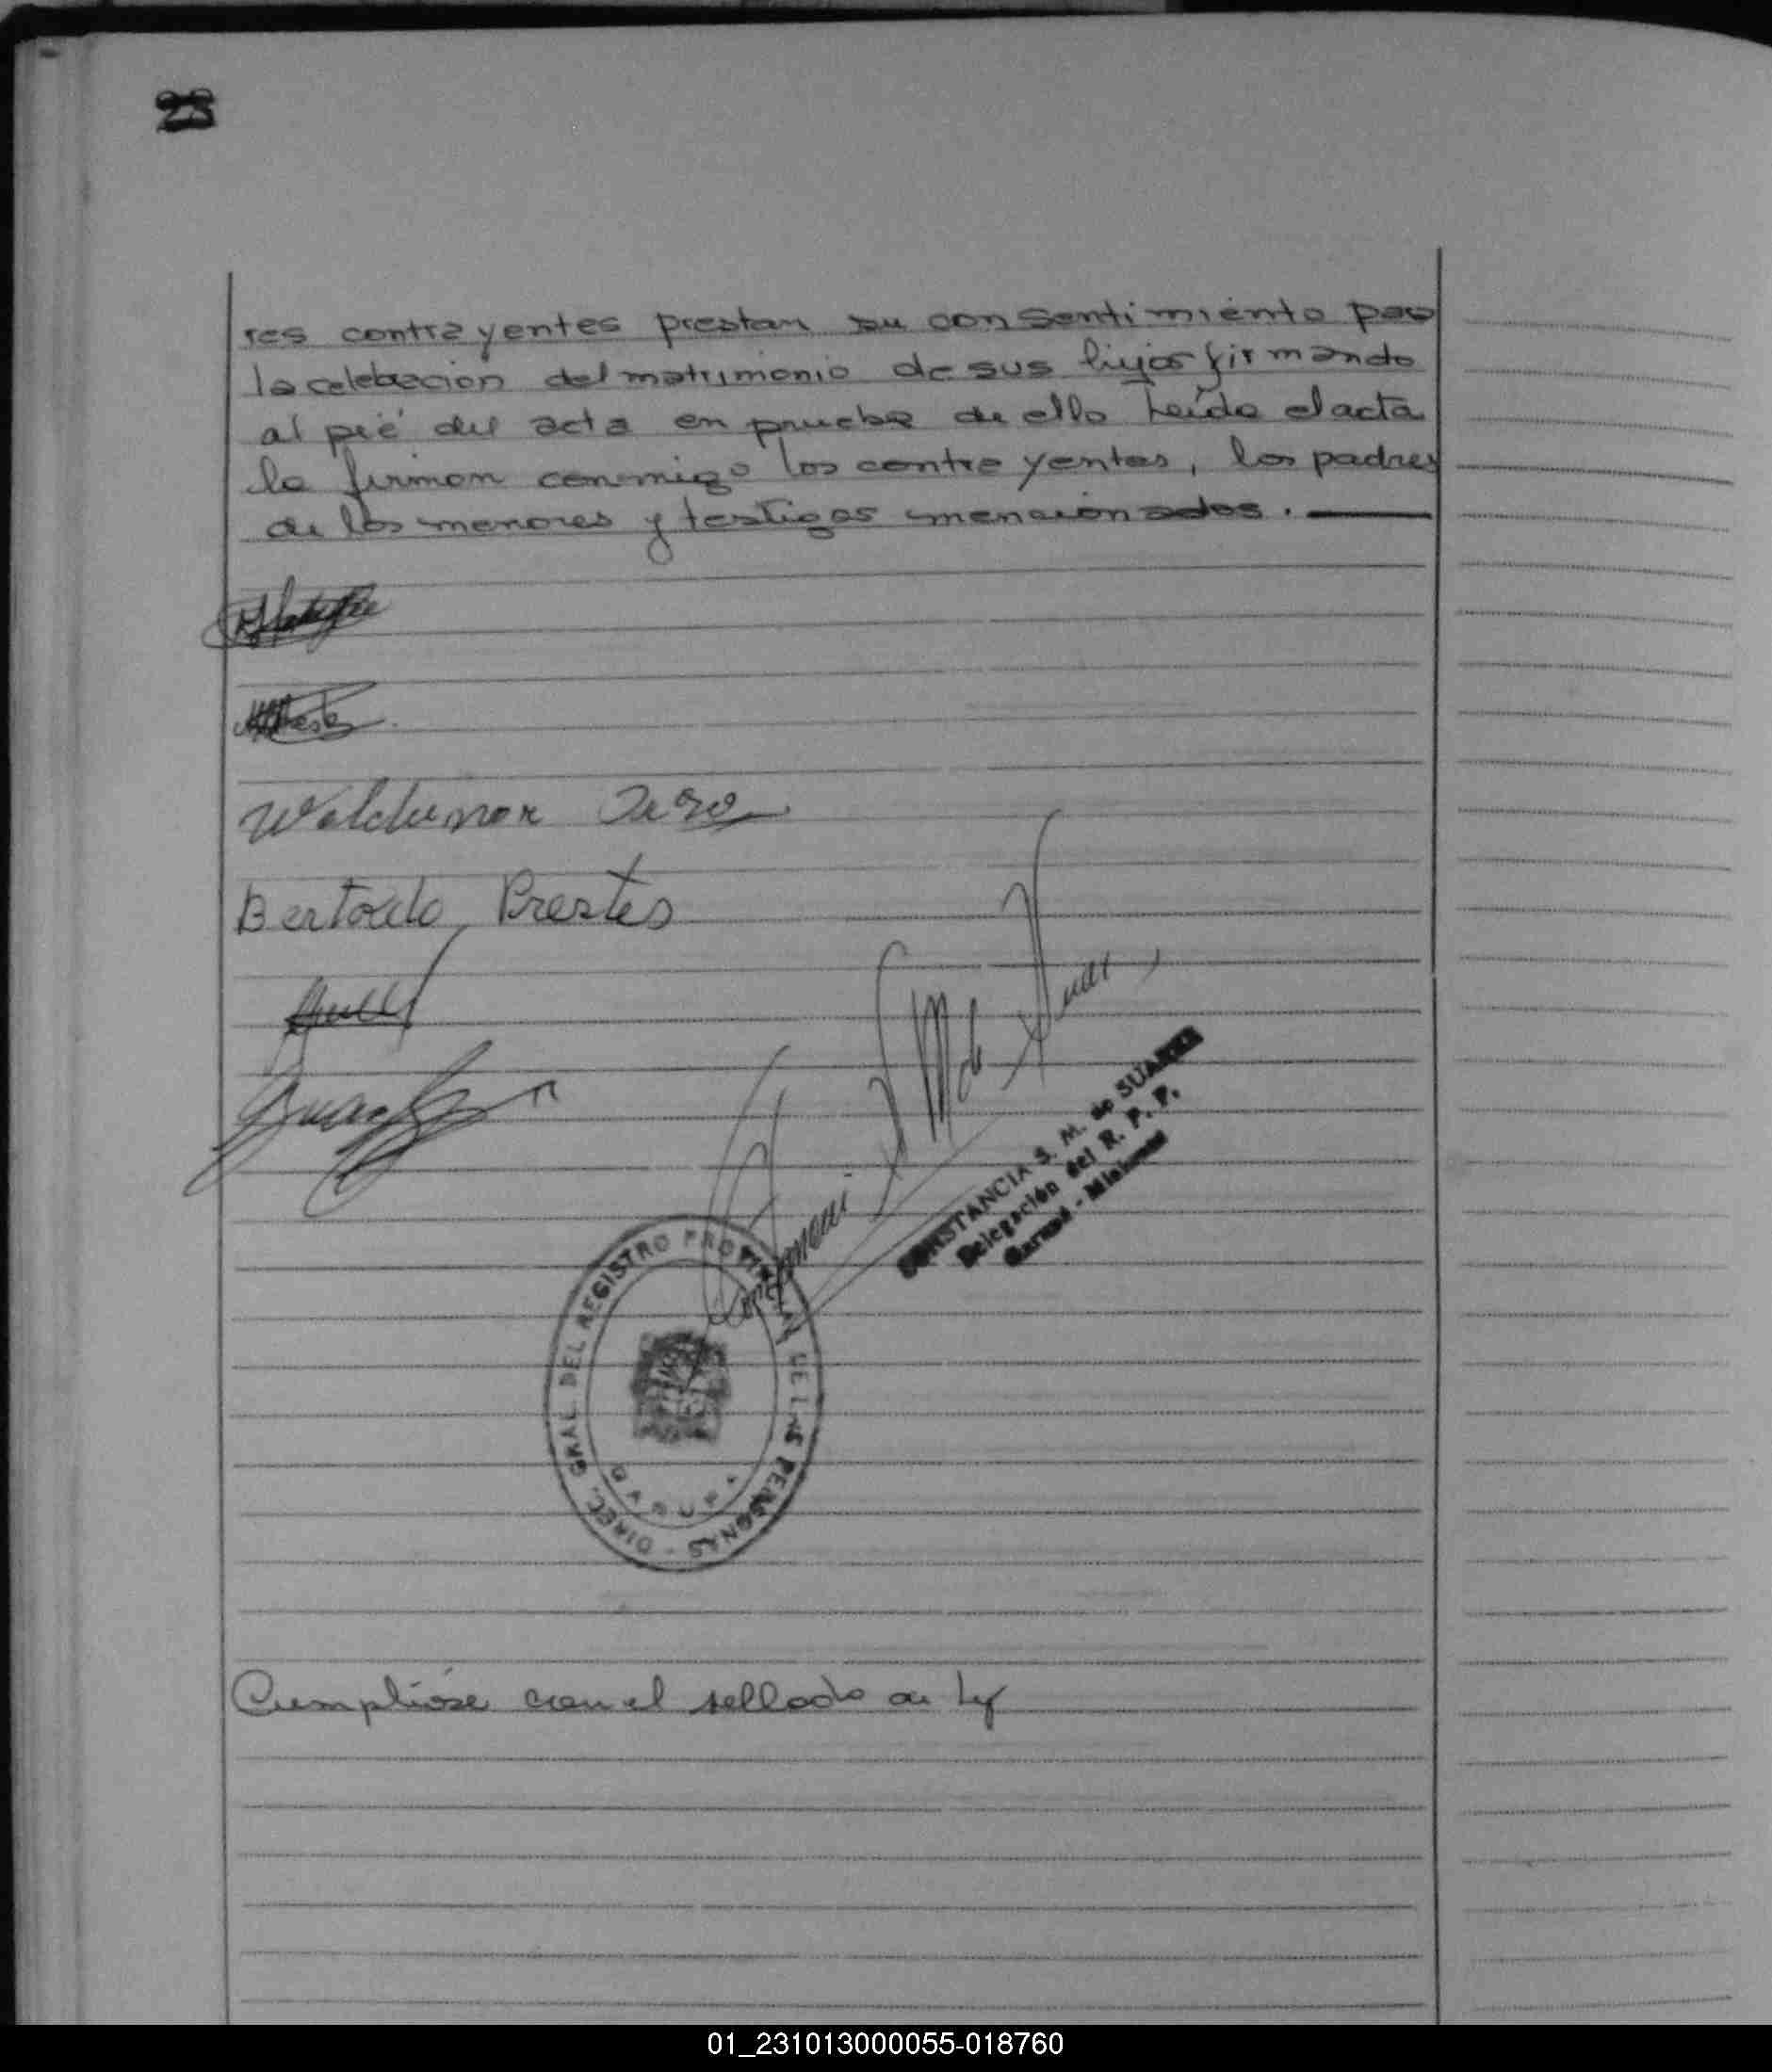 23
res contrayentes prestan su consentimiento para
la celebracion del matrimonio de sus hijos firmando
al pié del acta en prueba de ello Leída el acta
la firman conmigo los contrayentes, los padres
de los menores y testigos mencionados.
Waldemar
Bertoldo Prestes
CONSTANCIA S. M. de SUAREZ
Delegación del R. P. P.
Garupá - Misiones
DIREC. GRAL. DEL REGISTRO PROVINCIAL DE LAS PERSONAS -
GARUPA
Cumplióse con el sellado de Ley
01_231013000055-018760